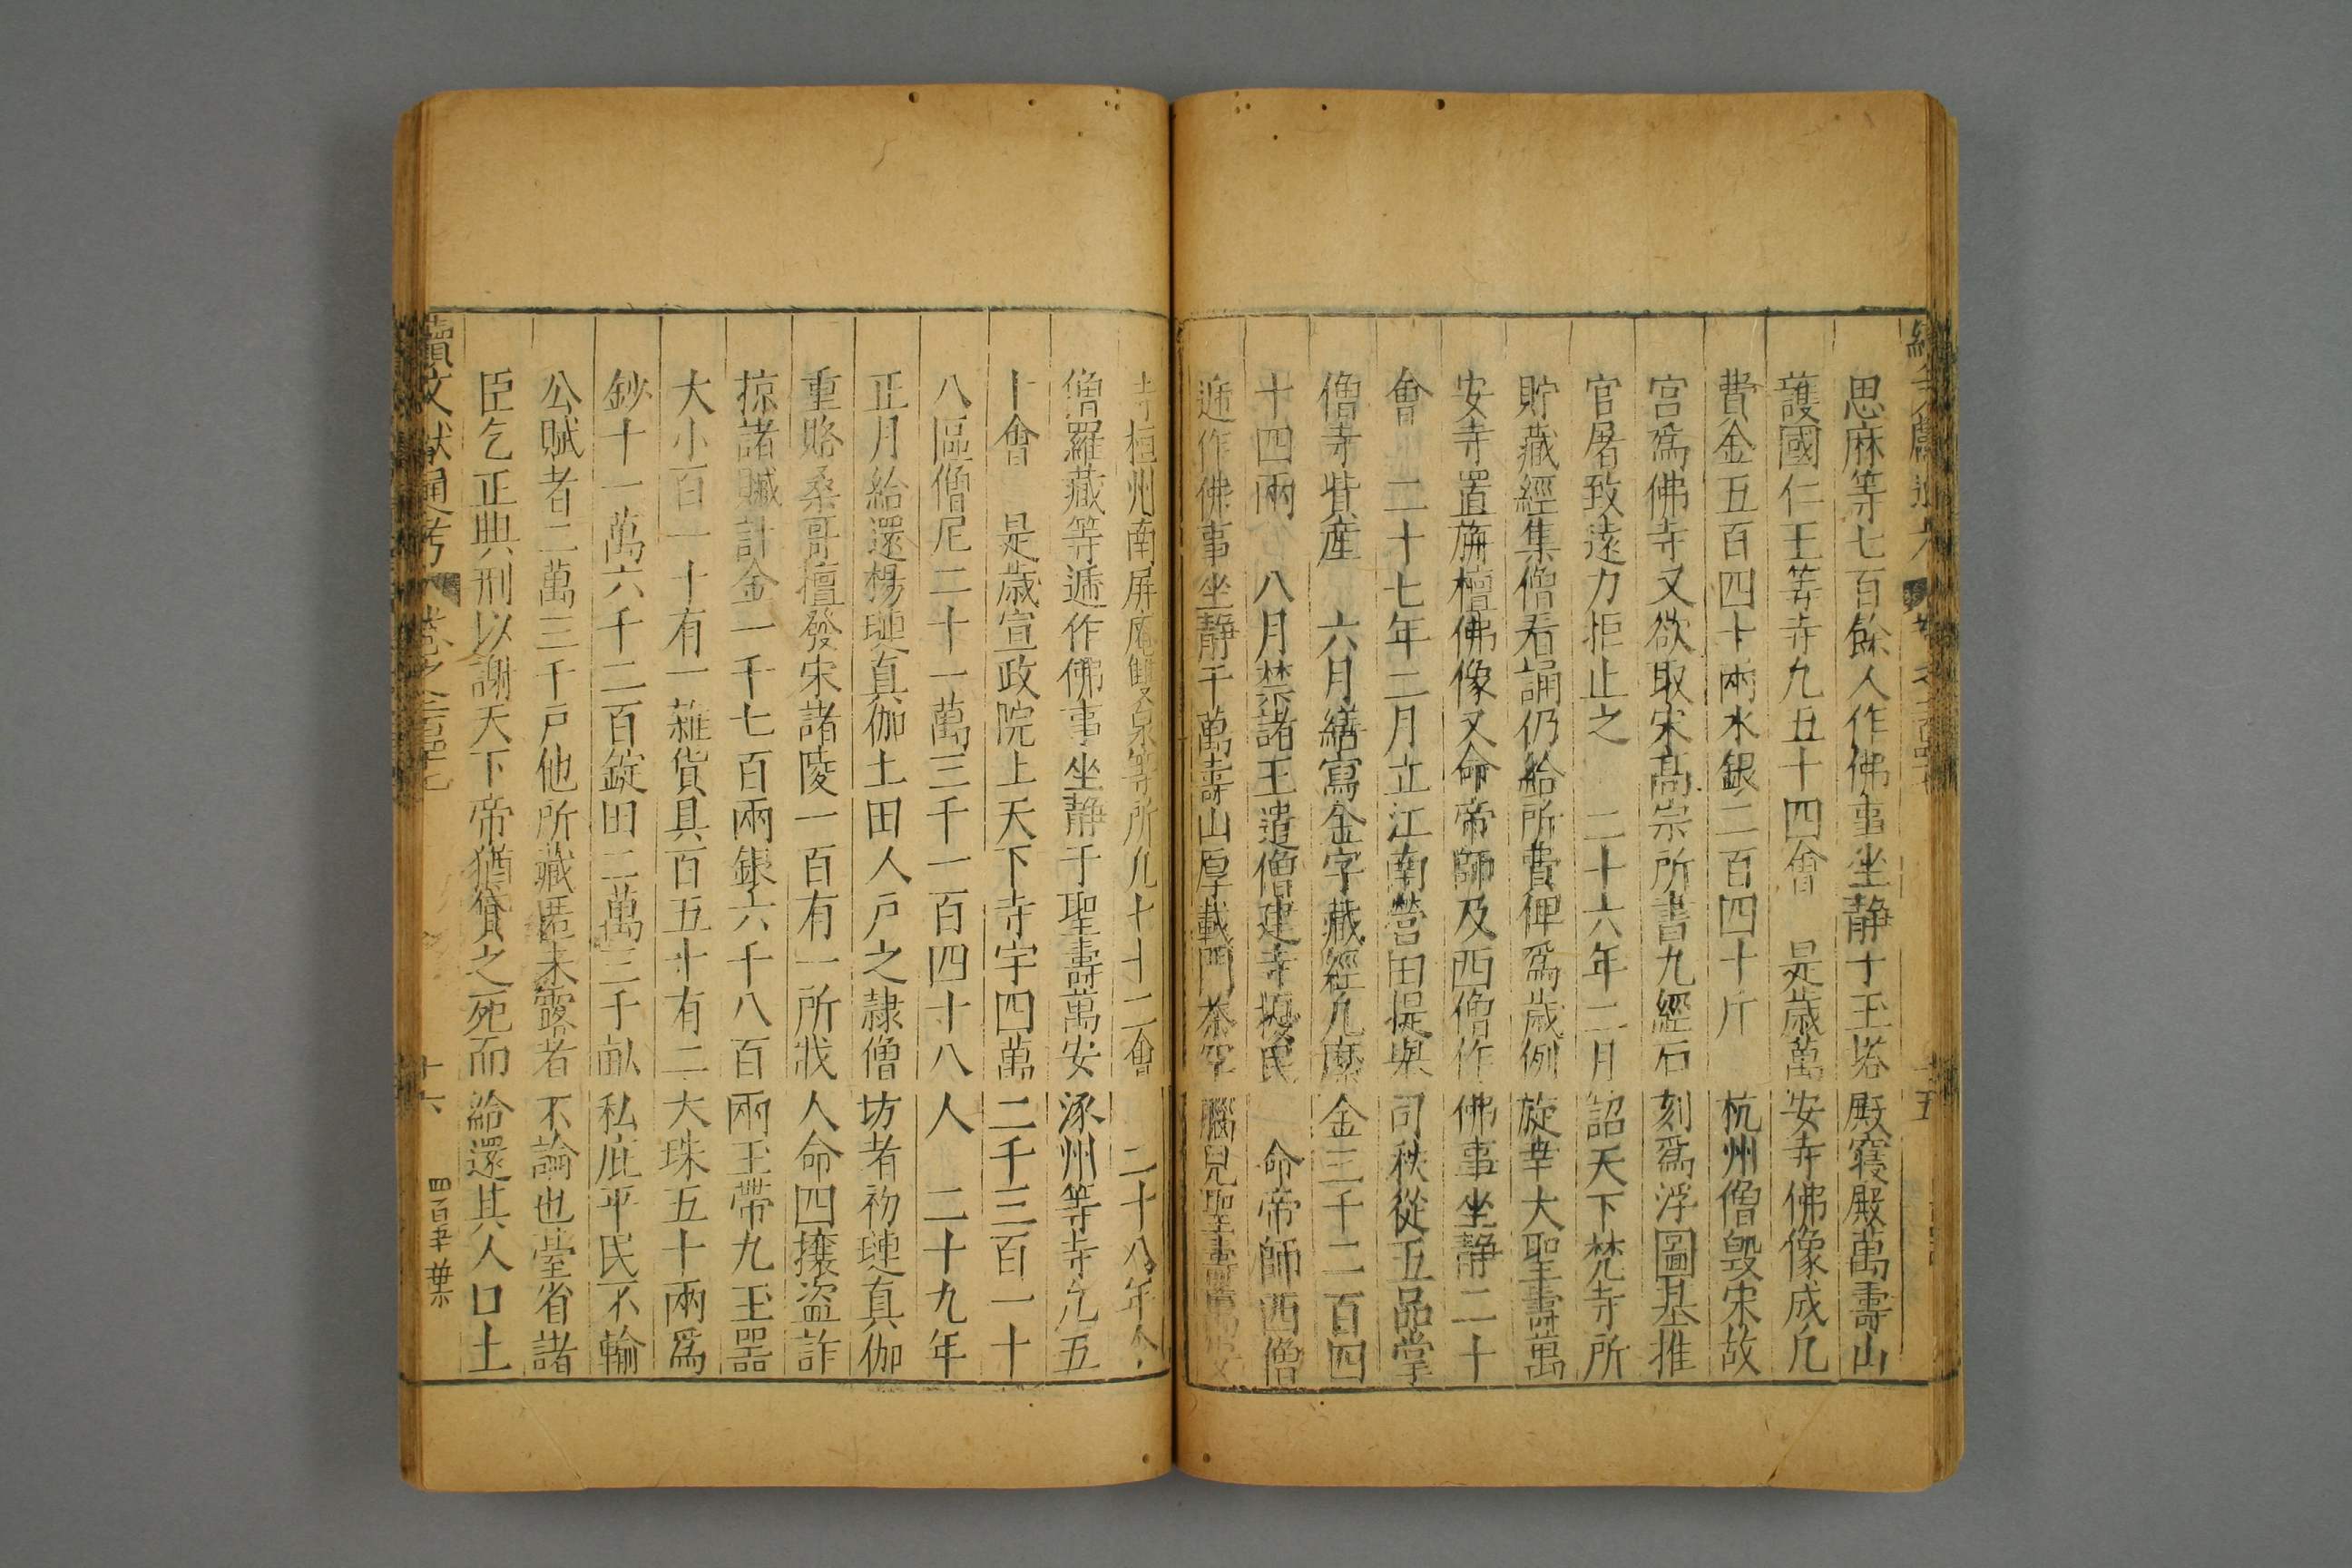 思麻等七百餘人作佛事坐静于玉塔殿寝殿萬壽山
護國仁王等寺九五十四會　是歲萬安寺佛像成凢
費金五百四十兩水銀二百四十斤　杭州僧毁宋故
宫爲佛寺又欲取宋髙宗所書九經石刻爲浮圖基推
官屠致遠力拒止之　二十六年二月詔天下梵寺所
貯藏經集僧看誦仍給所費俾爲歲例　旋幸大聖壽萬
安寺置旃檀佛像又命帝師及西僧作佛事坐静二十
會　二十七年二月立江南營田提舉司秩從五品掌
僧寺貲産　六月繕寫金字藏經凢糜金三千二百四
十四兩　八月禁諸王遣僧建寺擾民　命帝師西僧
遞作佛事坐静于萬壽山厚載門茶罕腦兒聖壽萬安
寺桓州南屏庵雙泉等所凢七十二會　二十八年令
僧羅藏等遞作佛事坐静于聖壽萬安涿州等寺凢五
十會　是歲宣政院上天下寺宇四萬二千三百一十
八區僧尼二十一萬三千一百四十八人　二十九年
正月給還楊璉真伽土田人户之隷僧坊者初璉真伽
重賂桑哥擅發宋諸陵一百有一所戕人命四攘盗詐
掠諸贓計金一千七百兩銀六千八百兩玉帶九玉噐
大小百一十有一雜貨具百五十有二大珠五十兩爲
鈔十一萬六千二百錠田二萬三千畝私庇平民不輸
公賦者二萬三千戸他所藏匿未露者不論也臺省諸
臣乞正典刑以謝天下帝猶貸之死而給還其人口土
續文獻通考　卷之　十六